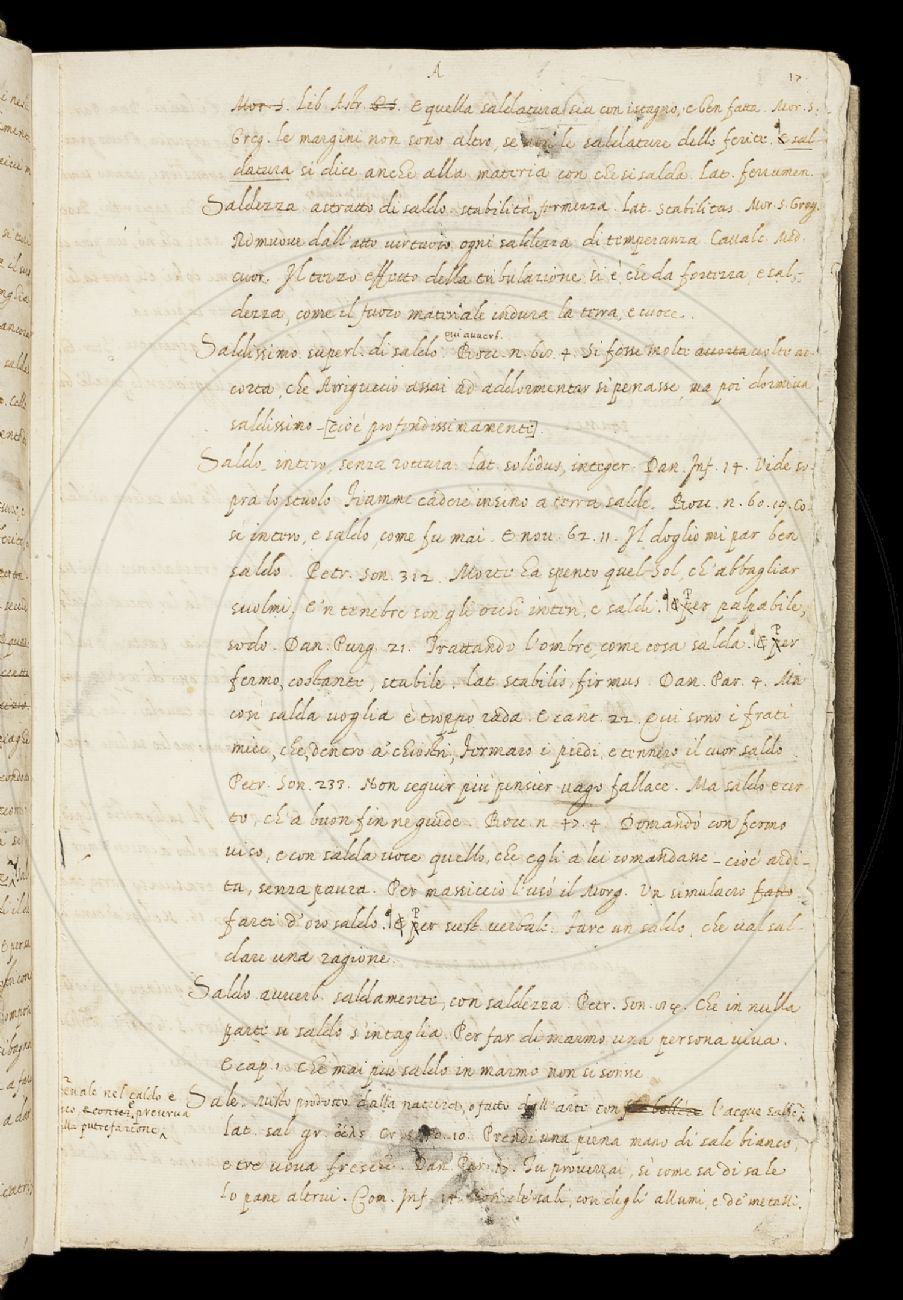 A
17
Mor. S. Lib. Astr. E quella saldatura sia con istagno, e ben fatta. Mor. S.
Greg. le margini non sono altro, se non le saldature delle ferite. E sal-
datura si dice anche alla materia con che si salda. Lat. ferrumen.
Saldezza astratto di saldo. stabilità, fermezza. Lat. stabilitas. Mor. S. Greg.
Rimuove dall' atto virtuoso ogni saldezza di temperanza. Cavalc. Med.
cuor. Il terzo effetto della tribulazione si è, che da fortezza, e sal-
dezza, come il fuoco materiale indura la terra, e cuoce.
qui avverb.
Saldissimo. superl. di saldo. Bocc. n. 60. 4. Si fosse molto accorta molto ac-
corta, che Arriguccio assai ad addormentar si penasse, ma poi dormiva
saldissimo - [cioè profondissimamente]
Saldo, intero, senza rottura. lat. solidus, integer. Dan. Inf. 14. Vide so-
pra lo stuolo fiamme cadere insino a terra salde. Bocc. n. 60. 19. Co-
sì intero, e saldo, come fu mai. E nov. 62. 11. Il doglio mi par ben
saldo. Petr. Son. 312. Morte ha spento quel Sol, ch' abbagliar
suolmi, e 'n tenebre son gli occhi interi, e saldi. Per palpabile,
sodo. Dan. Purg. 21. Trattando l' ombre, come cosa salda. Per
fermo, costante, stabile. lat. stabilis, firmus. Dan. Par. 4. Ma
così salda voglia è troppo rada. E cant. 22. Qui sono i frati
miei, che, dentro a' chiostri, fermaro i piedi, e tennero il cuor saldo
Petr. Son. 233. Non seguir più pensier vago fallace. Ma saldo e cer-
to, ch' a buon fin ne guide. Bocc. n. 47. 4. Domandò con fermo
viso, e con salda voce quello, che egli a lei comandasse - cioè ardi-
ta, senza paura. Per massiccio l' usò il Morg. Un simulacro fatto
farci d' oro saldo. Per sust. verbale. Fare un saldo, che val sal-
dare una ragione.
Saldo. avverb. saldamente, con saldezza. Petr. Son. Che in nulla
parte sì saldo s' intaglia. Per far di marmo una persona viva.
E cap. 1. Che mai più saldo in marmo non si
Sale. prodotto dalla natura, o fatto dall' arte con l' acque salse
nel caldo e
preserva
alla putrefazione
Lat. sal gr. ἅλς Cr. 10. Prendi una piena mano di sale bianco,
e tre uova fresche. Dan. Par. 17. Tu proverrai, sì come sa di sale
lo pane altrui. Com. Inf. 14. de' sali, con degli allumi, e de' metalli.